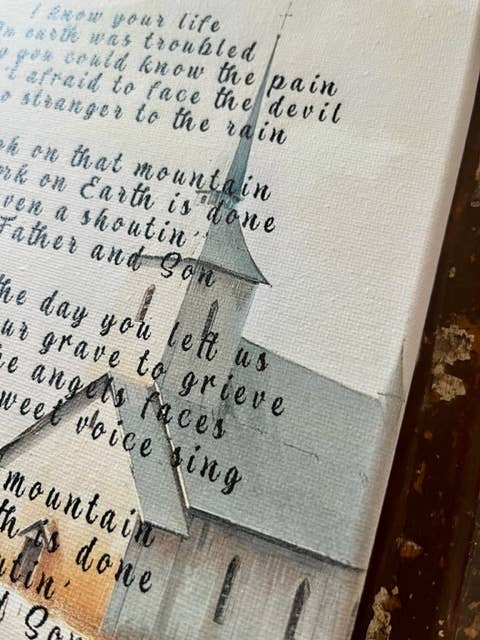 I know your life
on earth was troubled
you could know the pain
afraid to face the devil
stranger to the rain
on that mountain
on Earth is done
a shoutin'
Father and Son
the day you left us
grave to grieve
angels faces
voice sing
mountain
is done
Son